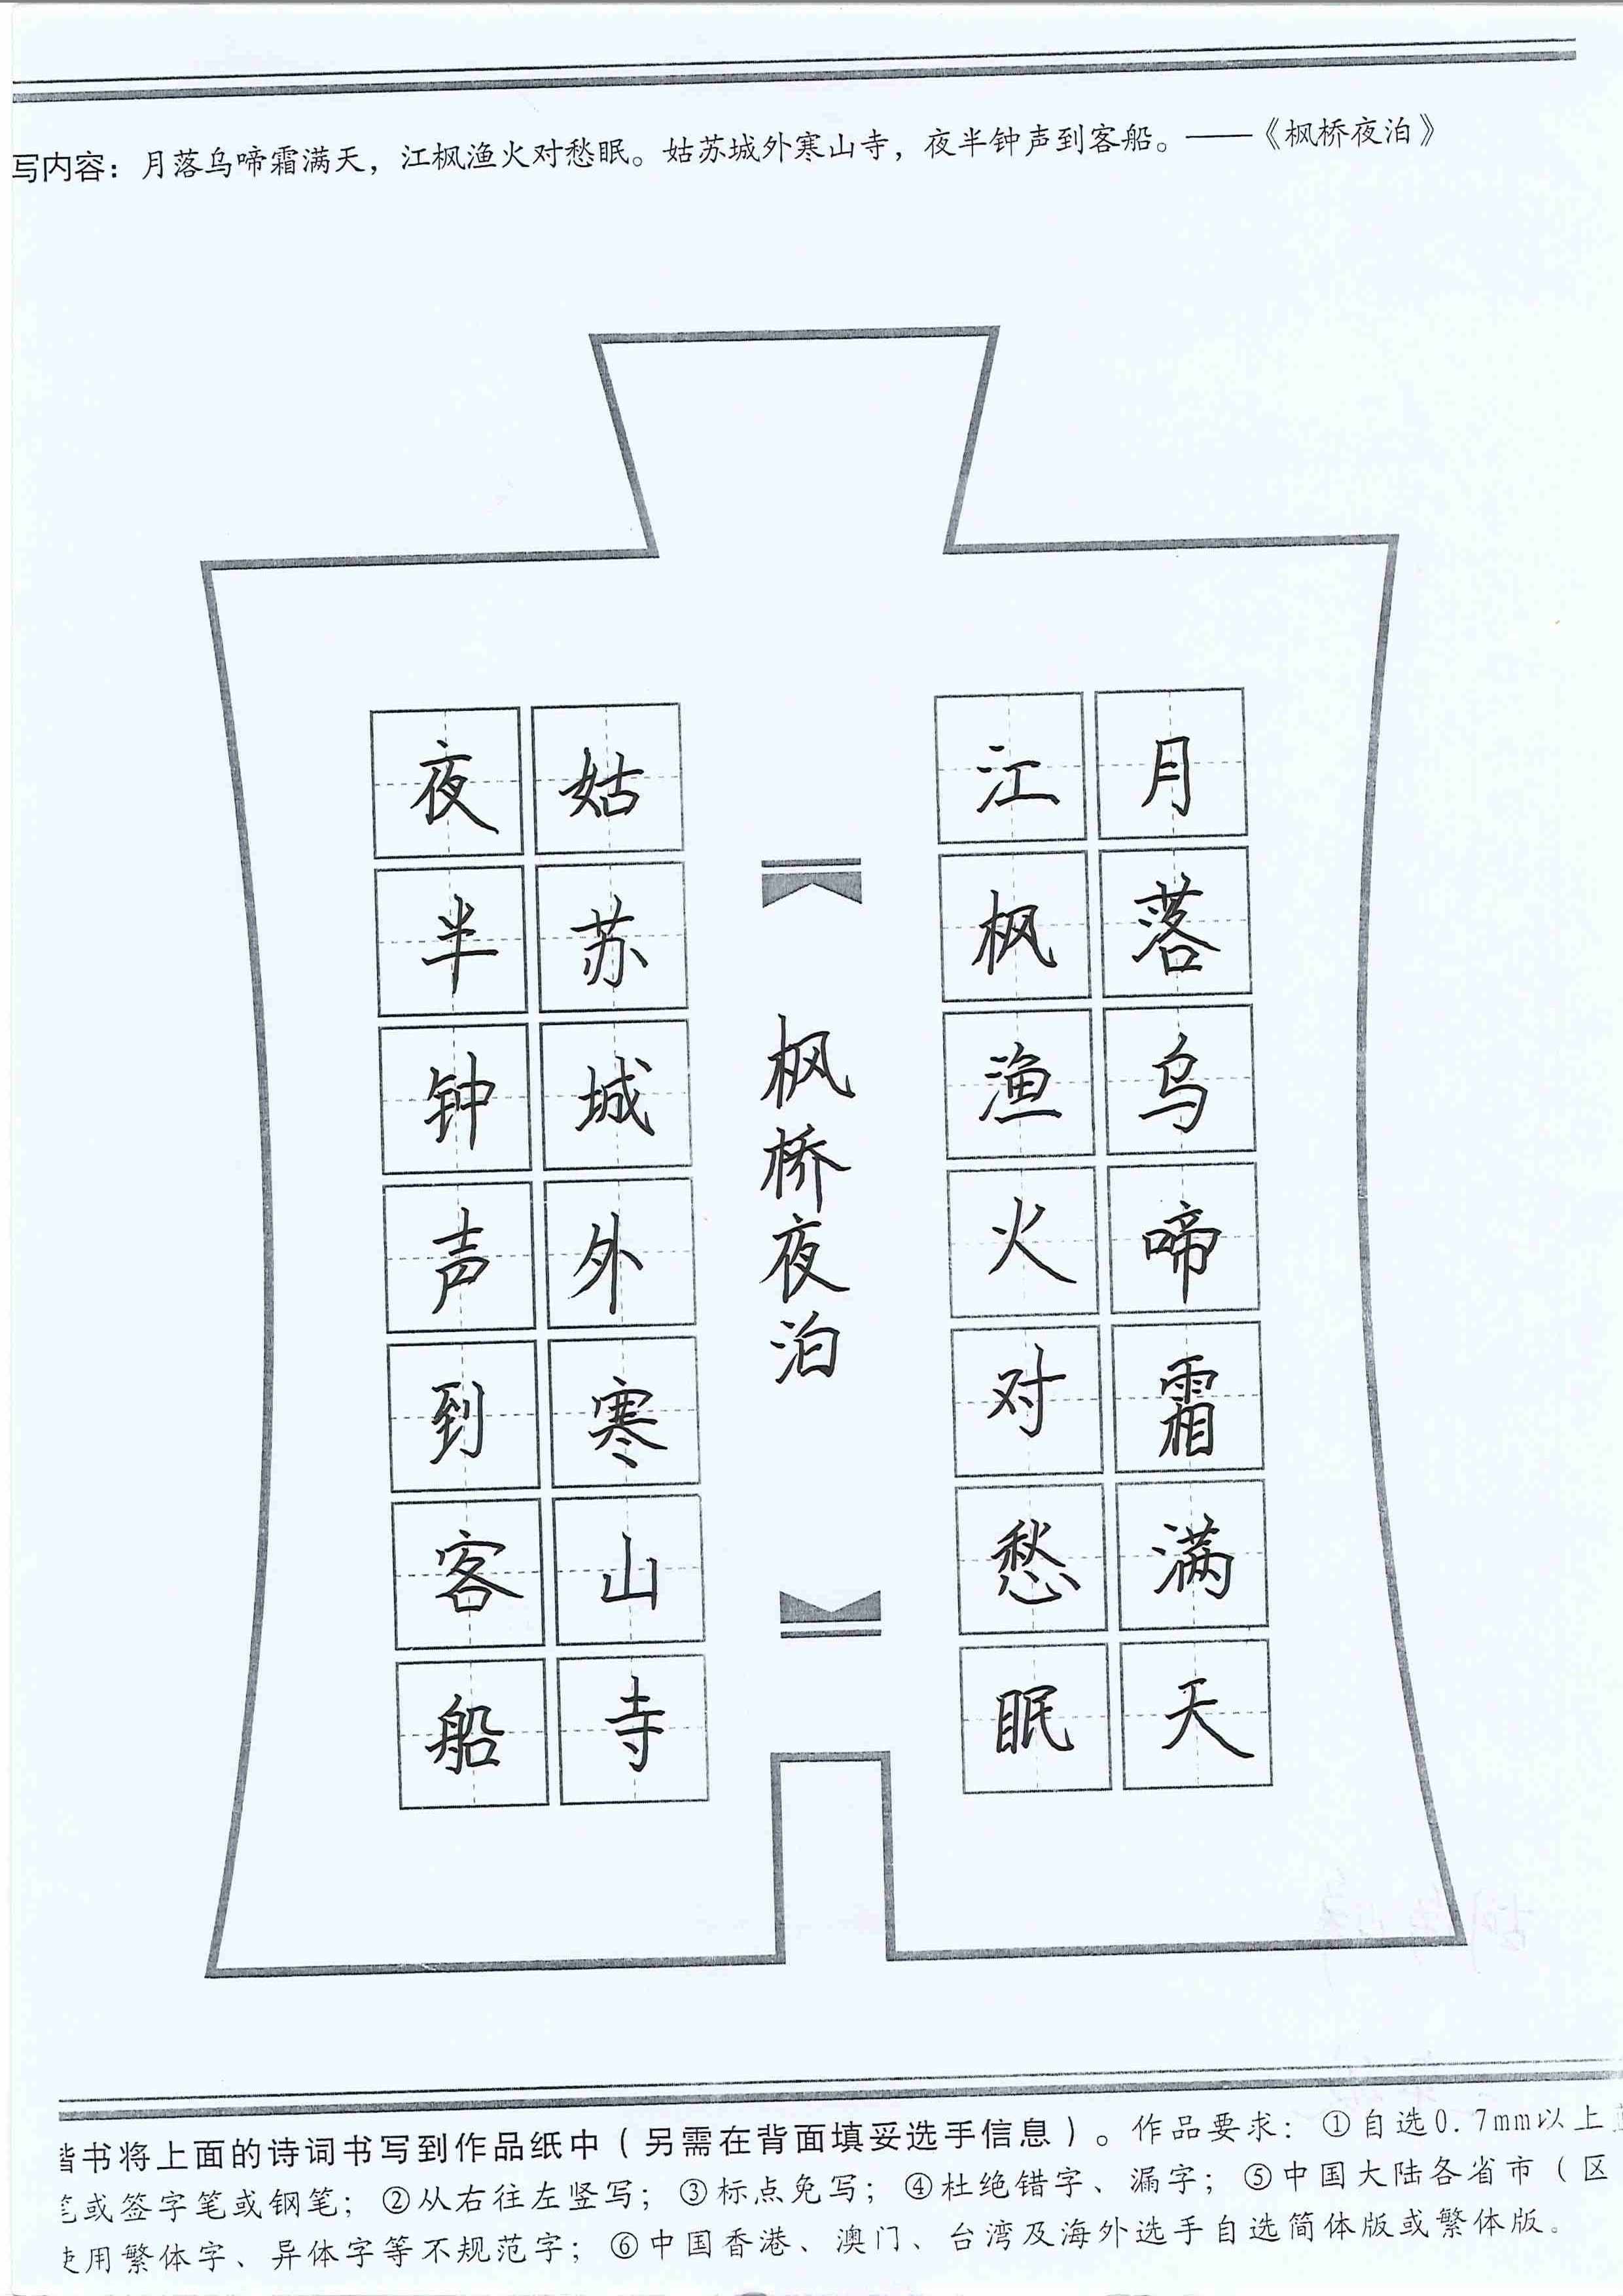 写内容：月落乌啼霜满天，江枫渔火对愁眠。姑苏城外寒山寺，夜半钟声到客船。——《枫桥夜泊》
月落乌啼霜满天
江枫渔火对愁眠
枫桥夜泊
姑苏城外寒山寺
夜半钟声到客船
楷书将上面的诗词书写到作品纸中（另需在背面填妥选手信息）。作品要求：①自选0.7mm以上
笔或签字笔或钢笔；②从右往左竖写；③标点免写；④杜绝错字、漏字；⑤中国大陆各省市（区
使用繁体字、异体字等不规范字；⑥中国香港、澳门、台湾及海外选手自选简体版或繁体版。